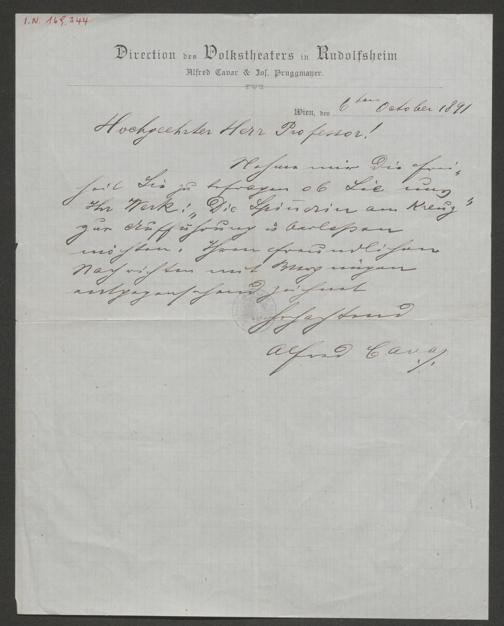 I.N. 169.344
Direction des Volkstheaters in Rudolfsheim
Alfred Cavar & Jos. Pruggmayer.
Wien, den 6ten October 1891
Hochgeehrter Herr Professor!
Nehme mir die Frei-
heit Sie zu befragen ob Sie uns
Ihr Werk: „Die Spinnerin am Kreuz"
zur Aufführung überlassen
möchten. Ihren freundlichen
Nachrichten mit Vergnügen
entgegensehend zeichnet
Hochachtend
Alfred Cavar